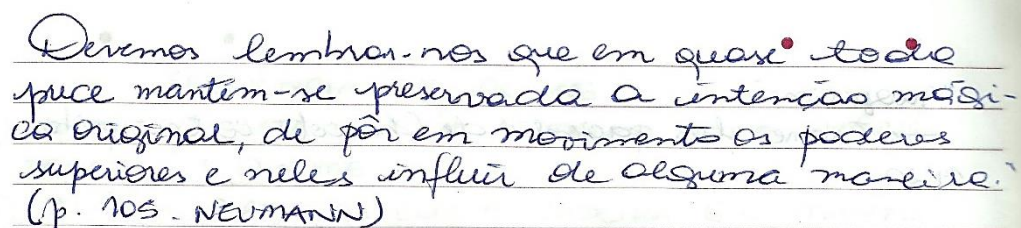 Devemos lembrar-nos que em quase toda
prece mantém-se preservada a intenção mági-
ca original, de pôr em movimento os poderes
superiores e neles influir de alguma maneira.
(p. 105 - NEUMANN)